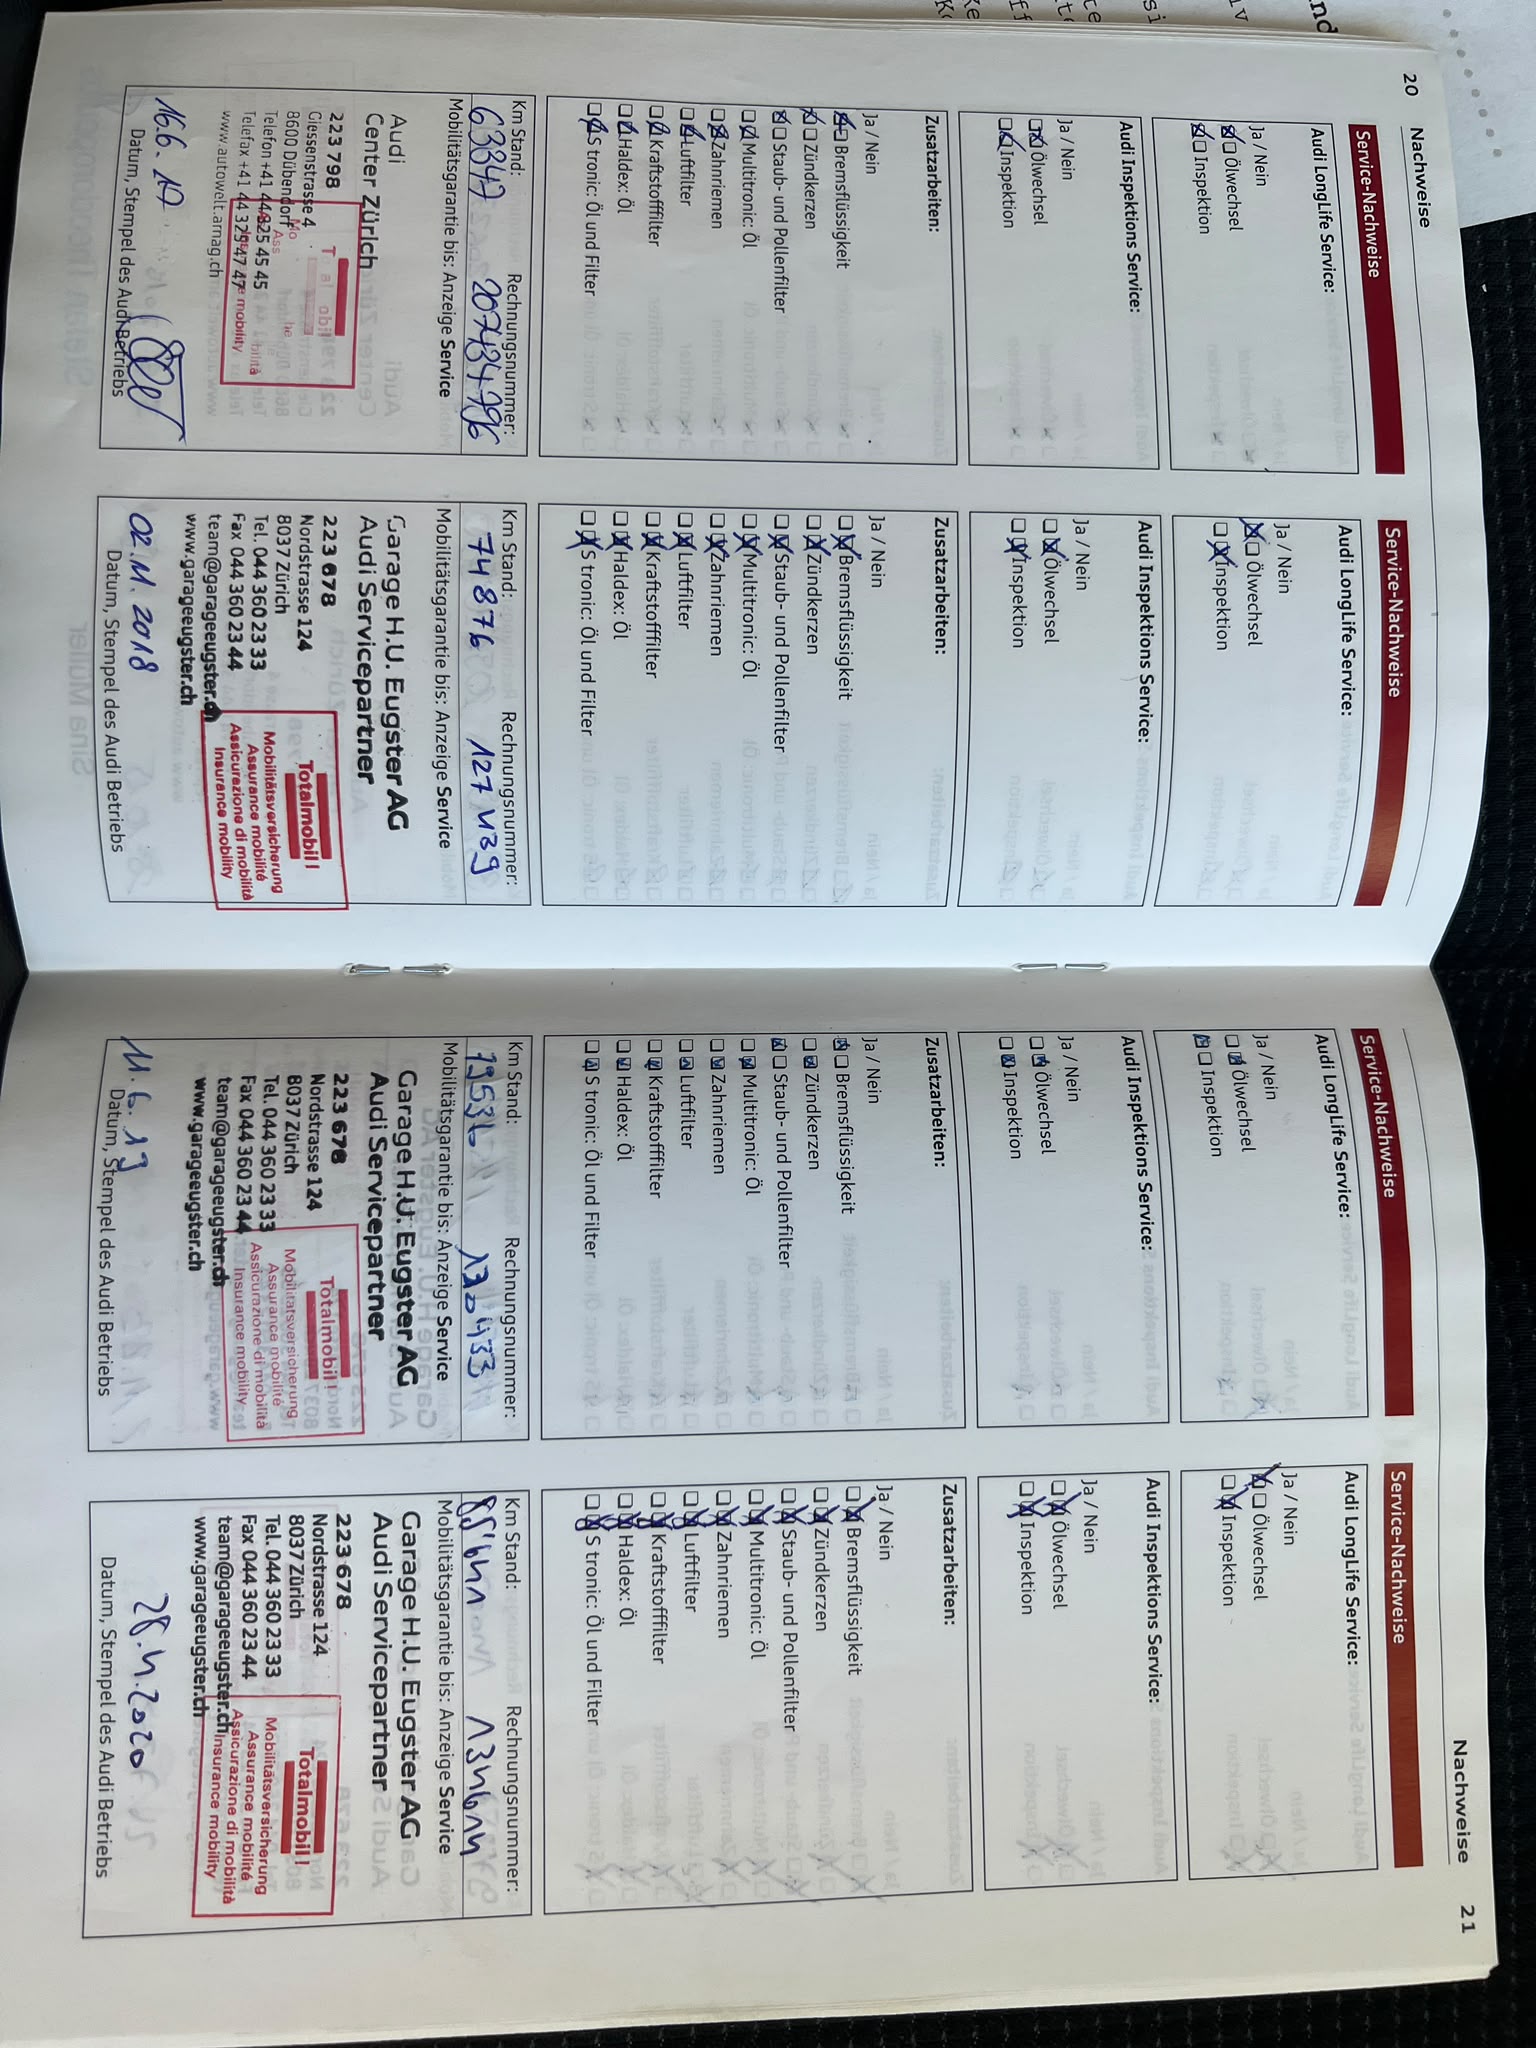 20
Nachweise
Service-Nachweise
Audi LongLife Service:
Ja / Nein
Ölwechsel
Inspektion
Audi Inspektions Service:
Ja / Nein
Ölwechsel
Inspektion
Zusatzarbeiten:
Ja / Nein
Bremsflüssigkeit
Zündkerzen
Staub- und Pollenfilter
Multitronic: Öl
Zahnriemen
Luftfilter
Kraftstofffilter
Haldex: Öl
S tronic: Öl und Filter
Km Stand: Rechnungsnummer:
63347 20734796
Mobilitätsgarantie bis: Anzeige Service
Audi
Center Zürich
223 798
Giessenstrasse 4
8600 Dübendorf
Telefon +41 44 325 45 45
Telefax +41 44 325 47 47
www.autowelt.amag.ch
mobility
16.6.17
Datum, Stempel des Audi Betriebs
Service-Nachweise
Audi LongLife Service:
Ja / Nein
Ölwechsel
Inspektion
Audi Inspektions Service:
Ja / Nein
Ölwechsel
Inspektion
Zusatzarbeiten:
Ja / Nein
Bremsflüssigkeit
Zündkerzen
Staub- und Pollenfilter
Multitronic: Öl
Zahnriemen
Luftfilter
Kraftstofffilter
Haldex: Öl
S tronic: Öl und Filter
Km Stand: Rechnungsnummer:
74876 127439
Mobilitätsgarantie bis: Anzeige Service
Garage H.U. Eugster AG
Audi Servicepartner
223 678
Nordstrasse 124
8037 Zürich
Tel. 044 360 23 33
Fax 044 360 23 44
team@garageeugster.ch
www.garageeugster.ch
Totalmobil!
Mobilitätsversicherung
Assurance mobilité
Assicurazione di mobilità
Insurance mobility
02.11.2018
Datum, Stempel des Audi Betriebs
Service-Nachweise
Audi LongLife Service:
Ja / Nein
Ölwechsel
Inspektion
Audi Inspektions Service:
Ja / Nein
Ölwechsel
Inspektion
Zusatzarbeiten:
Ja / Nein
Bremsflüssigkeit
Zündkerzen
Staub- und Pollenfilter
Multitronic: Öl
Zahnriemen
Luftfilter
Kraftstofffilter
Haldex: Öl
S tronic: Öl und Filter
Km Stand: Rechnungsnummer:
130433
Mobilitätsgarantie bis: Anzeige Service
Garage H.U. Eugster AG
Audi Servicepartner
223 678
Nordstrasse 124
8037 Zürich
Tel. 044 360 23 33
Fax 044 360 23 44
team@garageeugster.ch
www.garageeugster.ch
Totalmobil!
Mobilitätsversicherung
Assurance mobilité
Assicurazione di mobilità
Insurance mobility
11.6.19
Datum, Stempel des Audi Betriebs
Nachweise
21
Service-Nachweise
Audi LongLife Service:
Ja / Nein
Ölwechsel
Inspektion
Audi Inspektions Service:
Ja / Nein
Ölwechsel
Inspektion
Zusatzarbeiten:
Ja / Nein
Bremsflüssigkeit
Zündkerzen
Staub- und Pollenfilter
Multitronic: Öl
Zahnriemen
Luftfilter
Kraftstofffilter
Haldex: Öl
S tronic: Öl und Filter
Km Stand: Rechnungsnummer:
134614
Mobilitätsgarantie bis: Anzeige Service
Garage H.U. Eugster AG
Audi Servicepartner
223 678
Nordstrasse 124
8037 Zürich
Tel. 044 360 23 33
Fax 044 360 23 44
team@garageeugster.ch
www.garageeugster.ch
Totalmobil!
Mobilitätsversicherung
Assurance mobilité
Assicurazione di mobilità
Insurance mobility
28.4.2020
Datum, Stempel des Audi Betriebs